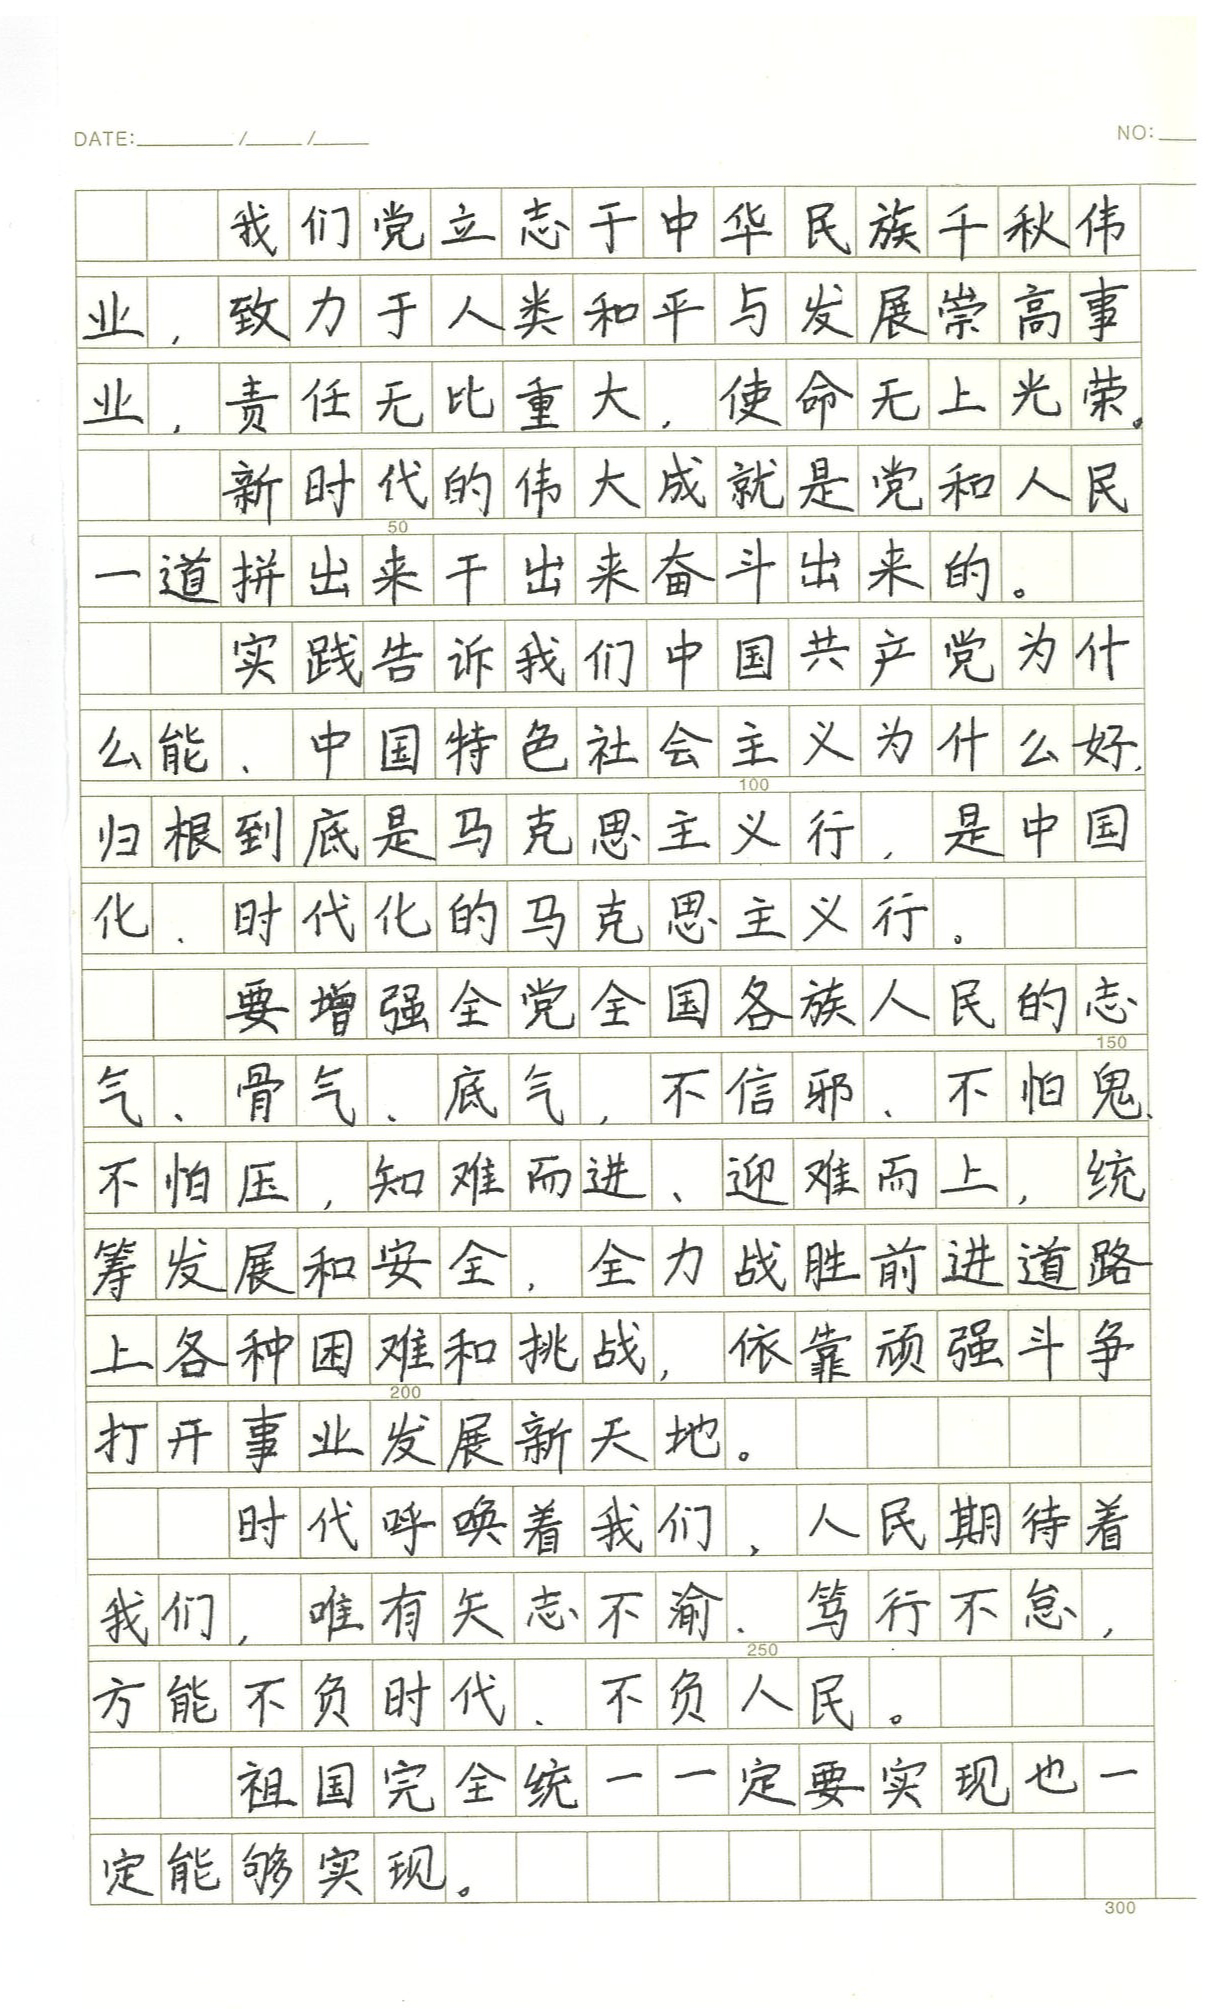 DATE: / / NO:
我们党立志于中华民族千秋伟
业，致力于人类和平与发展崇高事
业，责任无比重大，使命无上光荣。
新时代的伟大成就是党和人民
50
一道拼出来干出来奋斗出来的。
实践告诉我们中国共产党为什
么能、中国特色社会主义为什么好，
100
归根到底是马克思主义行，是中国
化、时代化的马克思主义行。
要增强全党全国各族人民的志
150
气、骨气、底气，不信邪、不怕鬼、
不怕压，知难而进、迎难而上，统
筹发展和安全，全力战胜前进道路
上各种困难和挑战，依靠顽强斗争
200
打开事业发展新天地。
时代呼唤着我们，人民期待着
我们，唯有矢志不渝、笃行不怠，
250
方能不负时代、不负人民。
祖国完全统一一定要实现也一
定能够实现。
300